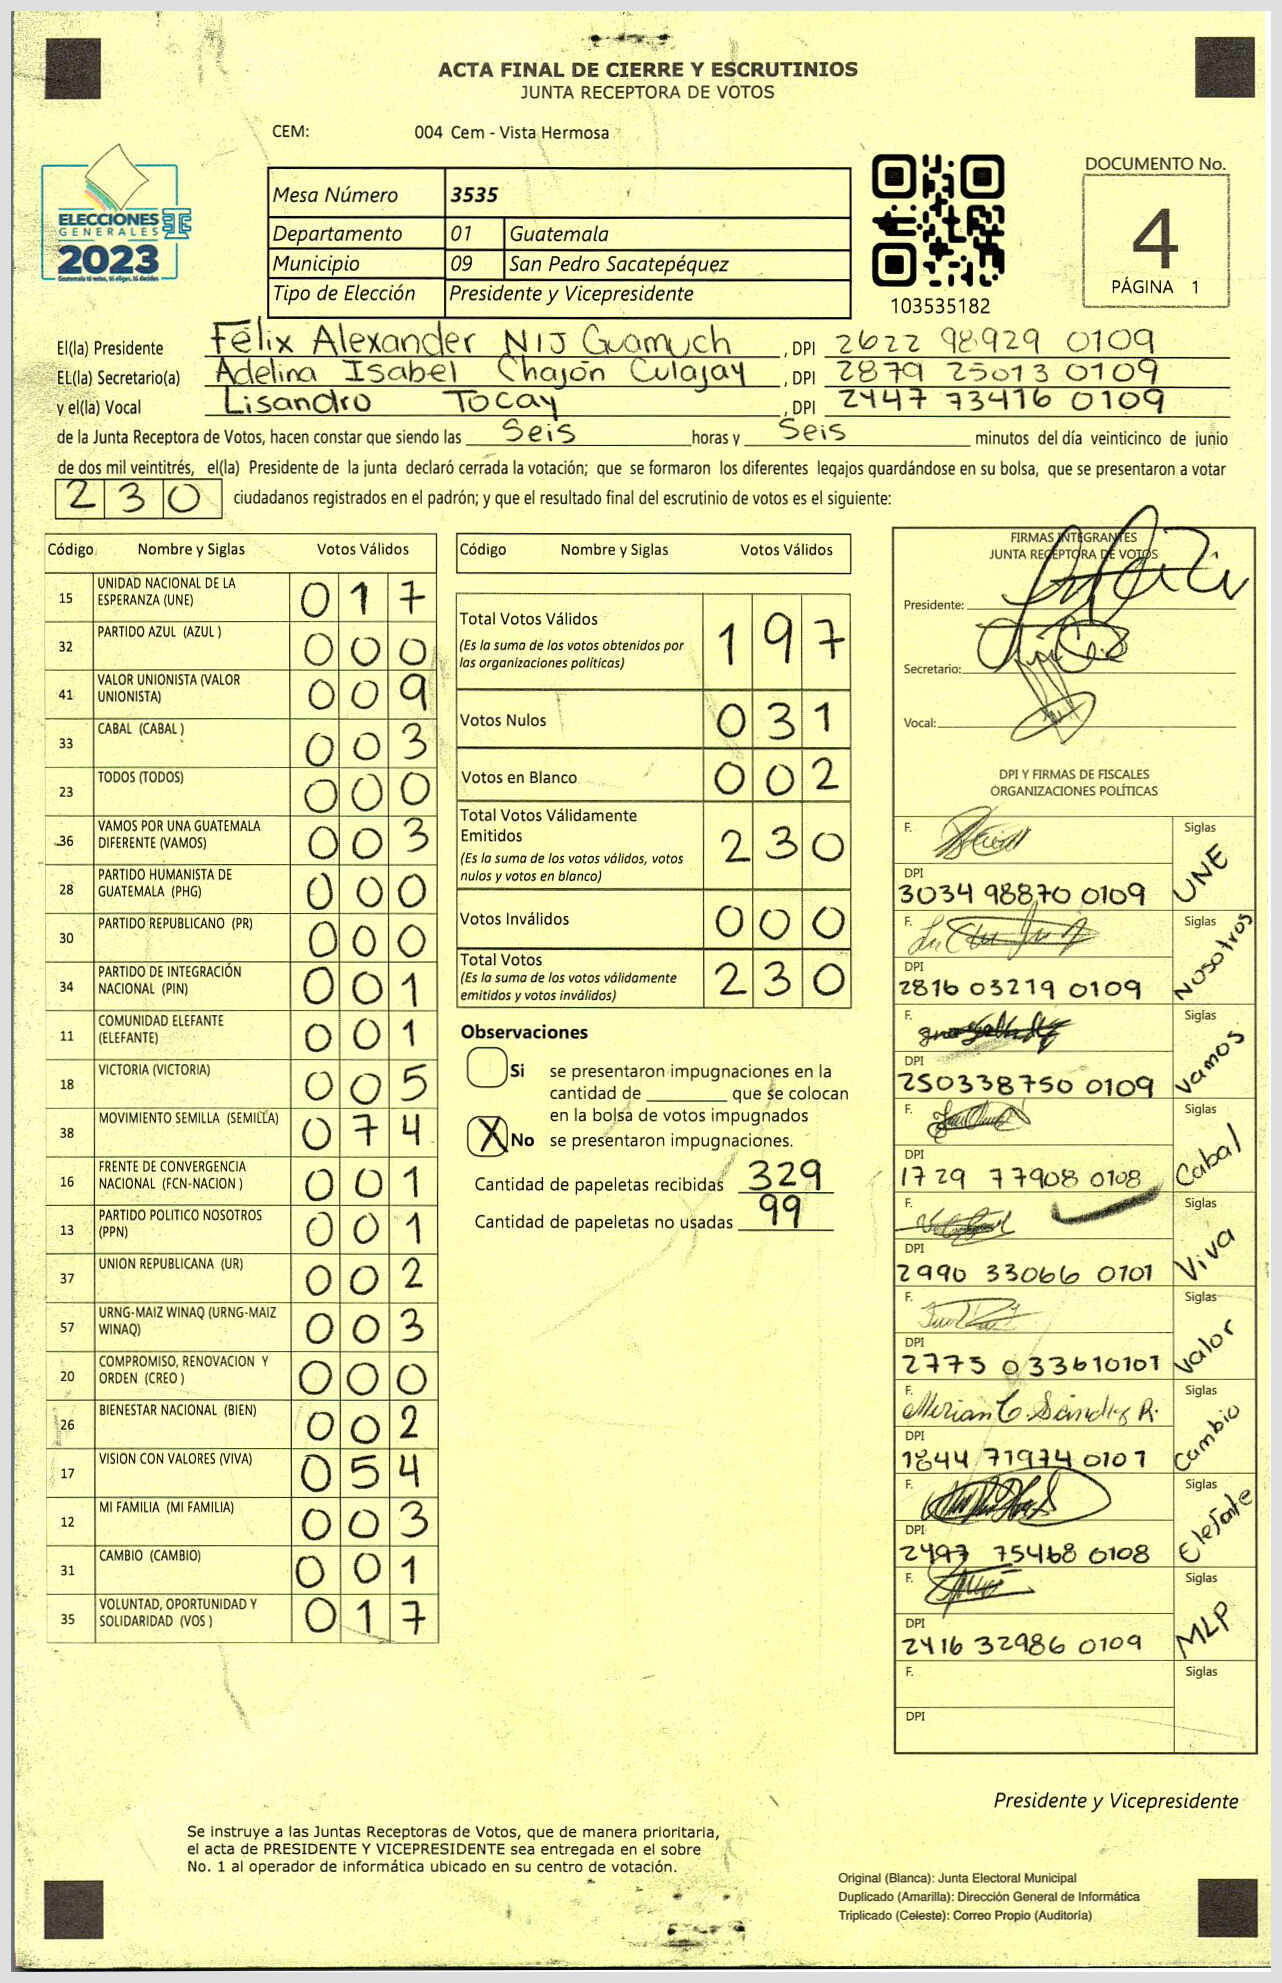 ACTA FINAL DE CIERRE Y ESCRUTINIOS
JUNTA RECEPTORA DE VOTOS
CEM: 004 Cem - Vista Hermosa
DOCUMENTO No.
4
PÁGINA 1
ELECCIONES
GENERALES
2023
Mesa Número 3535
Departamento 01 Guatemala
Municipio 09 San Pedro Sacatepéquez
Tipo de Elección Presidente y Vicepresidente
103535182
El(la) Presidente Félix Alexander NIJ Guamuch , DPI 2622 98929 0109
EL(la) Secretario(a) Adelina Isabel Chajón Culajay , DPI 2879 25013 0109
y el(la) Vocal Lisandro Tocay , DPI 2447 73416 0109
de la Junta Receptora de Votos, hacen constar que siendo las Seis horas y Seis minutos del día veinticinco de junio
de dos mil veintitrés, el(la) Presidente de la junta declaró cerrada la votación; que se formaron los diferentes legajos guardándose en su bolsa, que se presentaron a votar
230 ciudadanos registrados en el padrón; y que el resultado final del escrutinio de votos es el siguiente:
Código Nombre y Siglas Votos Válidos
15 UNIDAD NACIONAL DE LA ESPERANZA (UNE) 017
32 PARTIDO AZUL (AZUL ) 000
41 VALOR UNIONISTA (VALOR UNIONISTA) 009
33 CABAL (CABAL ) 003
23 TODOS (TODOS) 000
36 VAMOS POR UNA GUATEMALA DIFERENTE (VAMOS) 003
28 PARTIDO HUMANISTA DE GUATEMALA (PHG) 000
30 PARTIDO REPUBLICANO (PR) 000
34 PARTIDO DE INTEGRACIÓN NACIONAL (PIN) 001
11 COMUNIDAD ELEFANTE (ELEFANTE) 001
18 VICTORIA (VICTORIA) 005
38 MOVIMIENTO SEMILLA (SEMILLA) 074
16 FRENTE DE CONVERGENCIA NACIONAL (FCN-NACION ) 001
13 PARTIDO POLITICO NOSOTROS (PPN) 001
37 UNION REPUBLICANA (UR) 002
57 URNG-MAIZ WINAQ (URNG-MAIZ WINAQ) 003
20 COMPROMISO, RENOVACION Y ORDEN (CREO ) 000
26 BIENESTAR NACIONAL (BIEN) 002
17 VISION CON VALORES (VIVA) 054
12 MI FAMILIA (MI FAMILIA) 003
31 CAMBIO (CAMBIO) 001
35 VOLUNTAD, OPORTUNIDAD Y SOLIDARIDAD (VOS ) 017
Código Nombre y Siglas Votos Válidos
Total Votos Válidos 197
(Es la suma de los votos obtenidos por
las organizaciones políticas)
Votos Nulos 031
Votos en Blanco 002
Total Votos Válidamente
Emitidos 230
(Es la suma de los votos válidos, votos
nulos y votos en blanco)
Votos Inválidos 000
Total Votos 230
(Es la suma de los votos válidamente
emitidos y votos inválidos)
Observaciones
Si se presentaron impugnaciones en la
cantidad de ________ que se colocan
en la bolsa de votos impugnados
X No se presentaron impugnaciones.
Cantidad de papeletas recibidas 329
Cantidad de papeletas no usadas 99
FIRMAS INTEGRANTES
JUNTA RECEPTORA DE VOTOS
Presidente:
Secretario:
Vocal:
DPI Y FIRMAS DE FISCALES
ORGANIZACIONES POLÍTICAS
F. Siglas UNE
DPI
3034 98870 0109
F. Siglas Nosotros
DPI
2816 03219 0109
F. Siglas Vamos
DPI
250338750 0109
F. Siglas Cabal
DPI
1729 77908 0108
F. Siglas Viva
DPI
2990 33066 0101
F. Siglas Valor
DPI
2775 033610101
F. Mirian C. Sández R. Siglas Cambio
DPI
1844 71974 0101
F. Siglas Elefante
DPI
2497 75468 0108
F. Siglas MLP
DPI
2416 32986 0109
F. Siglas
DPI
Presidente y Vicepresidente
Se instruye a las Juntas Receptoras de Votos, que de manera prioritaria,
el acta de PRESIDENTE Y VICEPRESIDENTE sea entregada en el sobre
No. 1 al operador de informática ubicado en su centro de votación.
Original (Blanca): Junta Electoral Municipal
Duplicado (Amarilla): Dirección General de Informática
Triplicado (Celeste): Correo Propio (Auditoría)